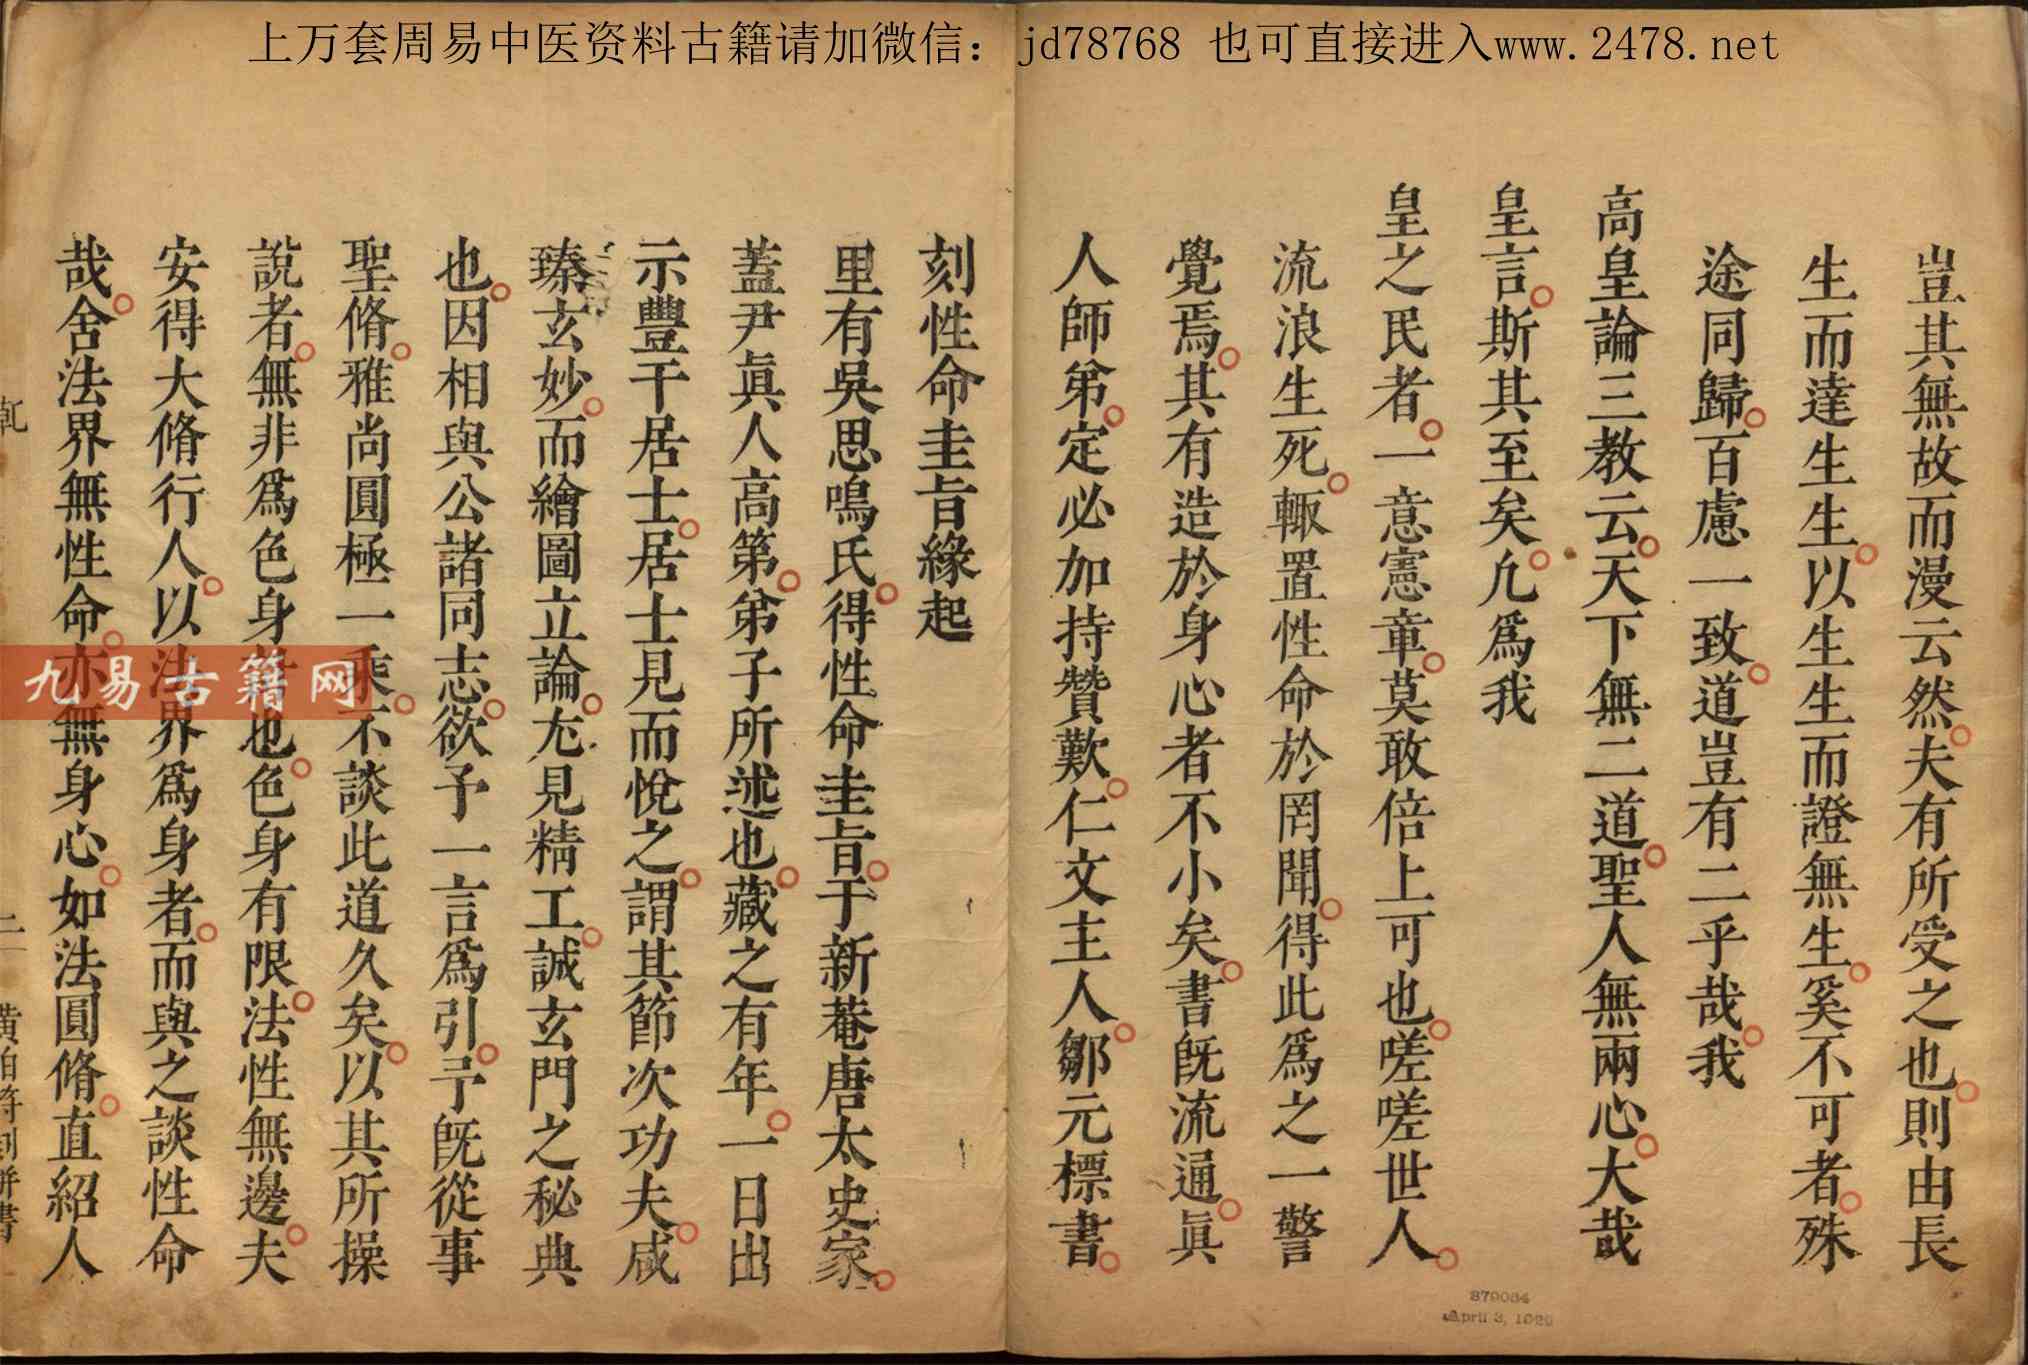 上万套周易中医资料古籍请加微信：jd78768 也可直接进入www.2478.net
豈其無故而漫云然夫有所受之也則由長
生而達生生以生生而證無生奚不可者殊
途同歸百慮一致道豈有二乎哉我
高皇論三教云天下無二道聖人無兩心大哉
皇言斯其至矣凢爲我
皇之民者一意憲章莫敢倍上可也嗟嗟世人
流浪生死輙置性命於罔聞得此爲之一警
覺焉其有造於身心者不小矣書旣流通眞
人師弟定必加持贊歎仁文主人鄒元標書
刻性命圭旨緣起
里有吳思鳴氏得性命圭旨于新菴唐太史家
蓋尹眞人高第弟子所述也藏之有年一日出
示豐干居士居士見而悅之謂其節次功夫咸
臻玄妙而繪圖立論尤見精工誠玄門之秘典
也因相與公諸同志欲予一言爲引予旣從事
聖脩雅尚圓極一乘不談此道久矣以其所操
說者無非爲色身計也色身有限法性無邊夫
安得大脩行人以法界爲身者而與之談性命
哉舍法界無性命亦無身心如法圓脩直紹人
二 黃伯符刻併書
九易古籍网
879084
April 3, 1929